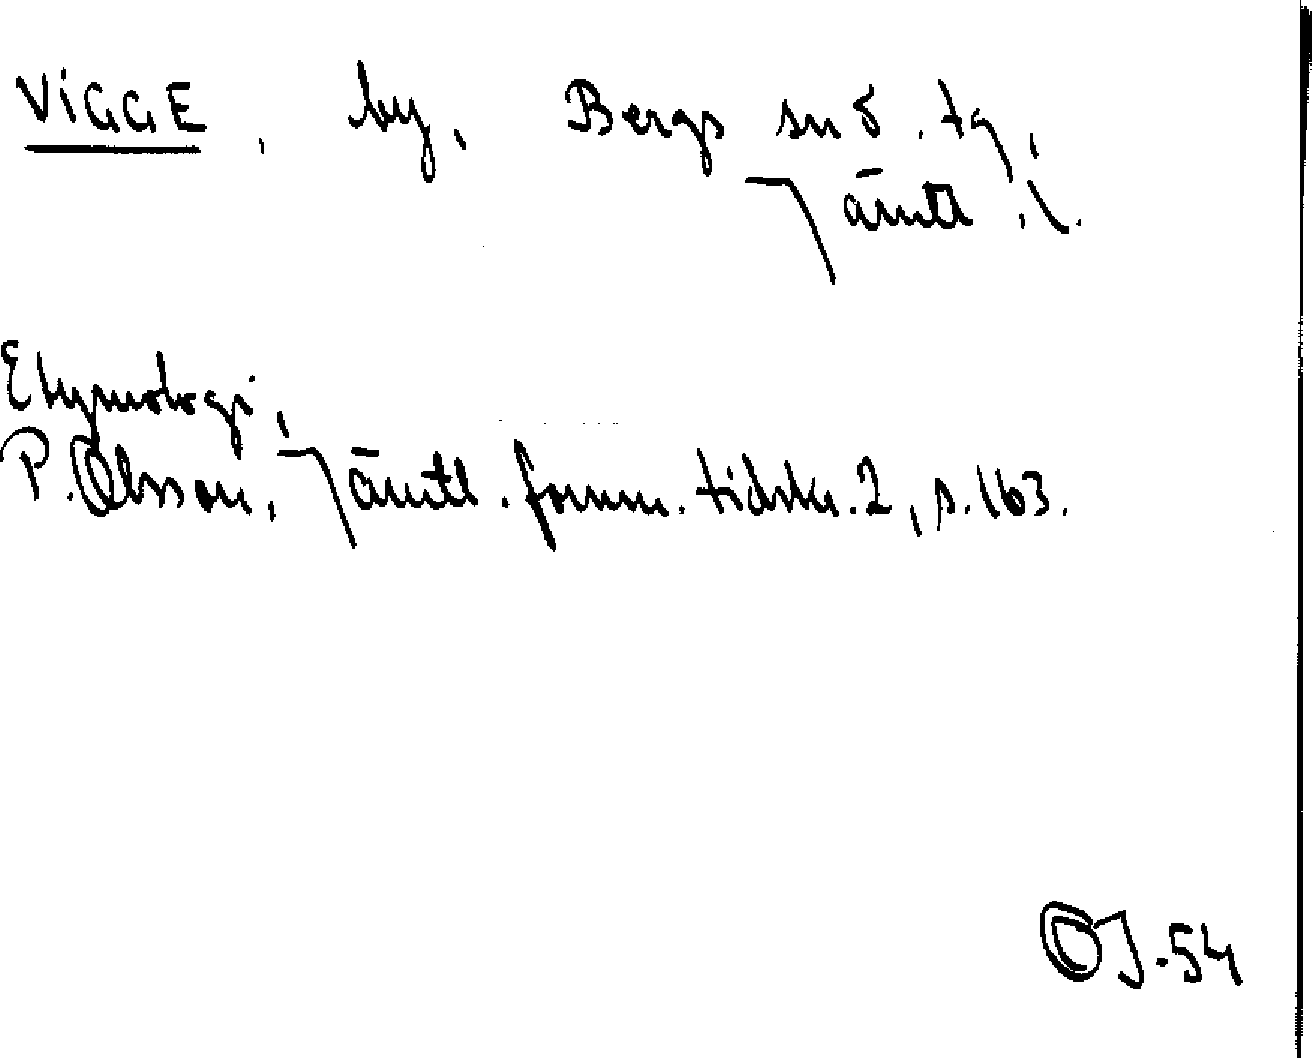 VIGGE, by, Bergs sn o. tg,
Jämtl. l.
Etymologi,
P. Olsson, Jämtl. fornm. tidskr. 2, s. 163.
OJ-54